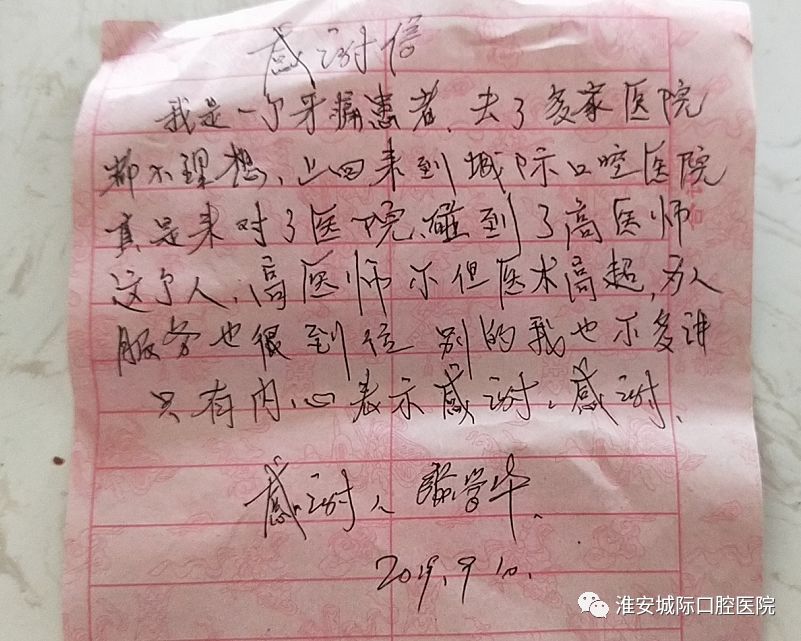 感谢信
我是一个牙痛患者、去了多家医院
都不理想、上回来到城际口腔医院
真是来对了医院、碰到了高医师
这个人、高医师不但医术高超，为人
服务也很到位 别的我也不多讲
只有内心表示感谢、感谢、
感谢人 学华、
2019.9.10.
淮安城际口腔医院